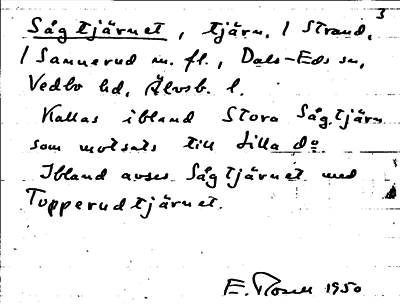 3
Sågtjärnet, tjärn, / Strand,
/ Sannerud m. fl., Dals-Eds sn,
Vedbo hd, Älvsb. l.
Kallas ibland Stora Sågtjärn
som motsats till Lilla do
Ibland avses Sågtjärnet med
Topperudtjärnet.
E. Rosell 1950